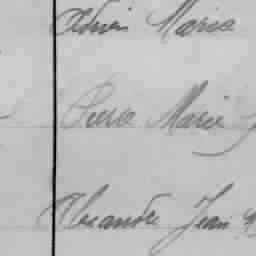 Edwin Maria
Pierre Marie J
Alexandre Jean M